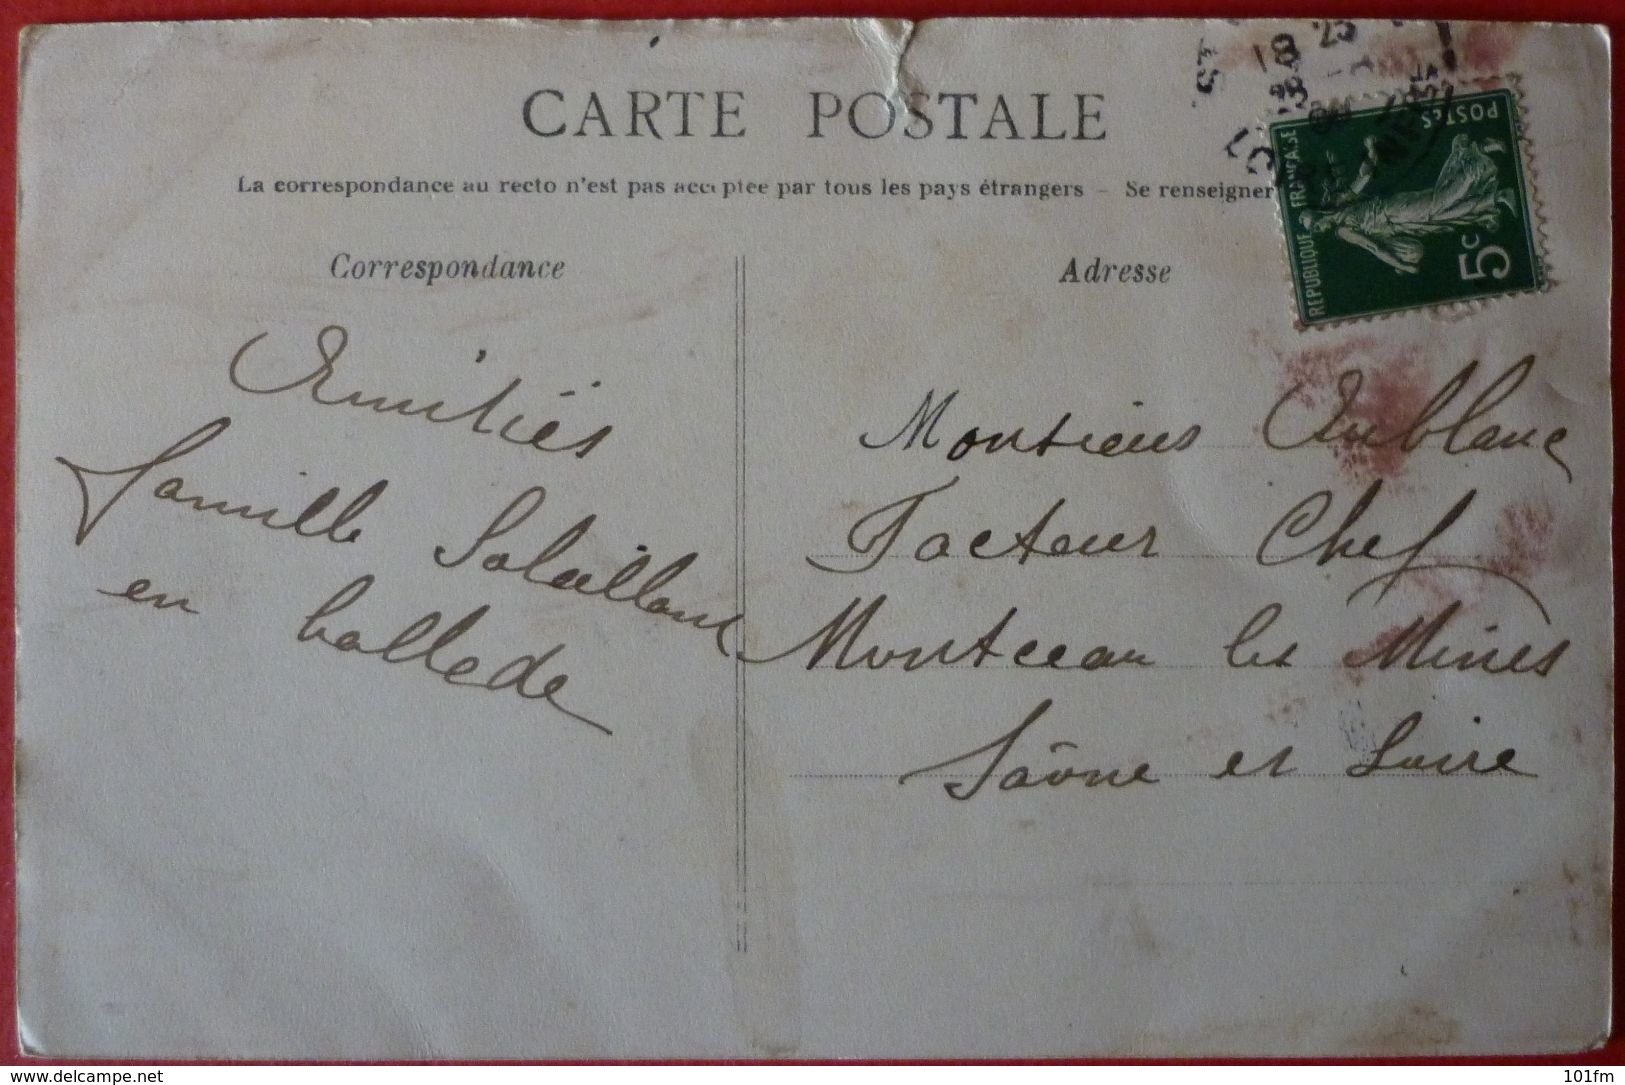 CARTE POSTALE
La correspondance au recto n'est pas acceptée par tous les pays étrangers – Se renseigner
Correspondance
Adresse
REPUBLIQUE FRANÇAISE
POSTES
5c
Amitiés
famille
en ballade
Monsieur Aublanc
Facteur Chef
Montceau les Mines
Saône et Loire
www.delcampe.net
101fm